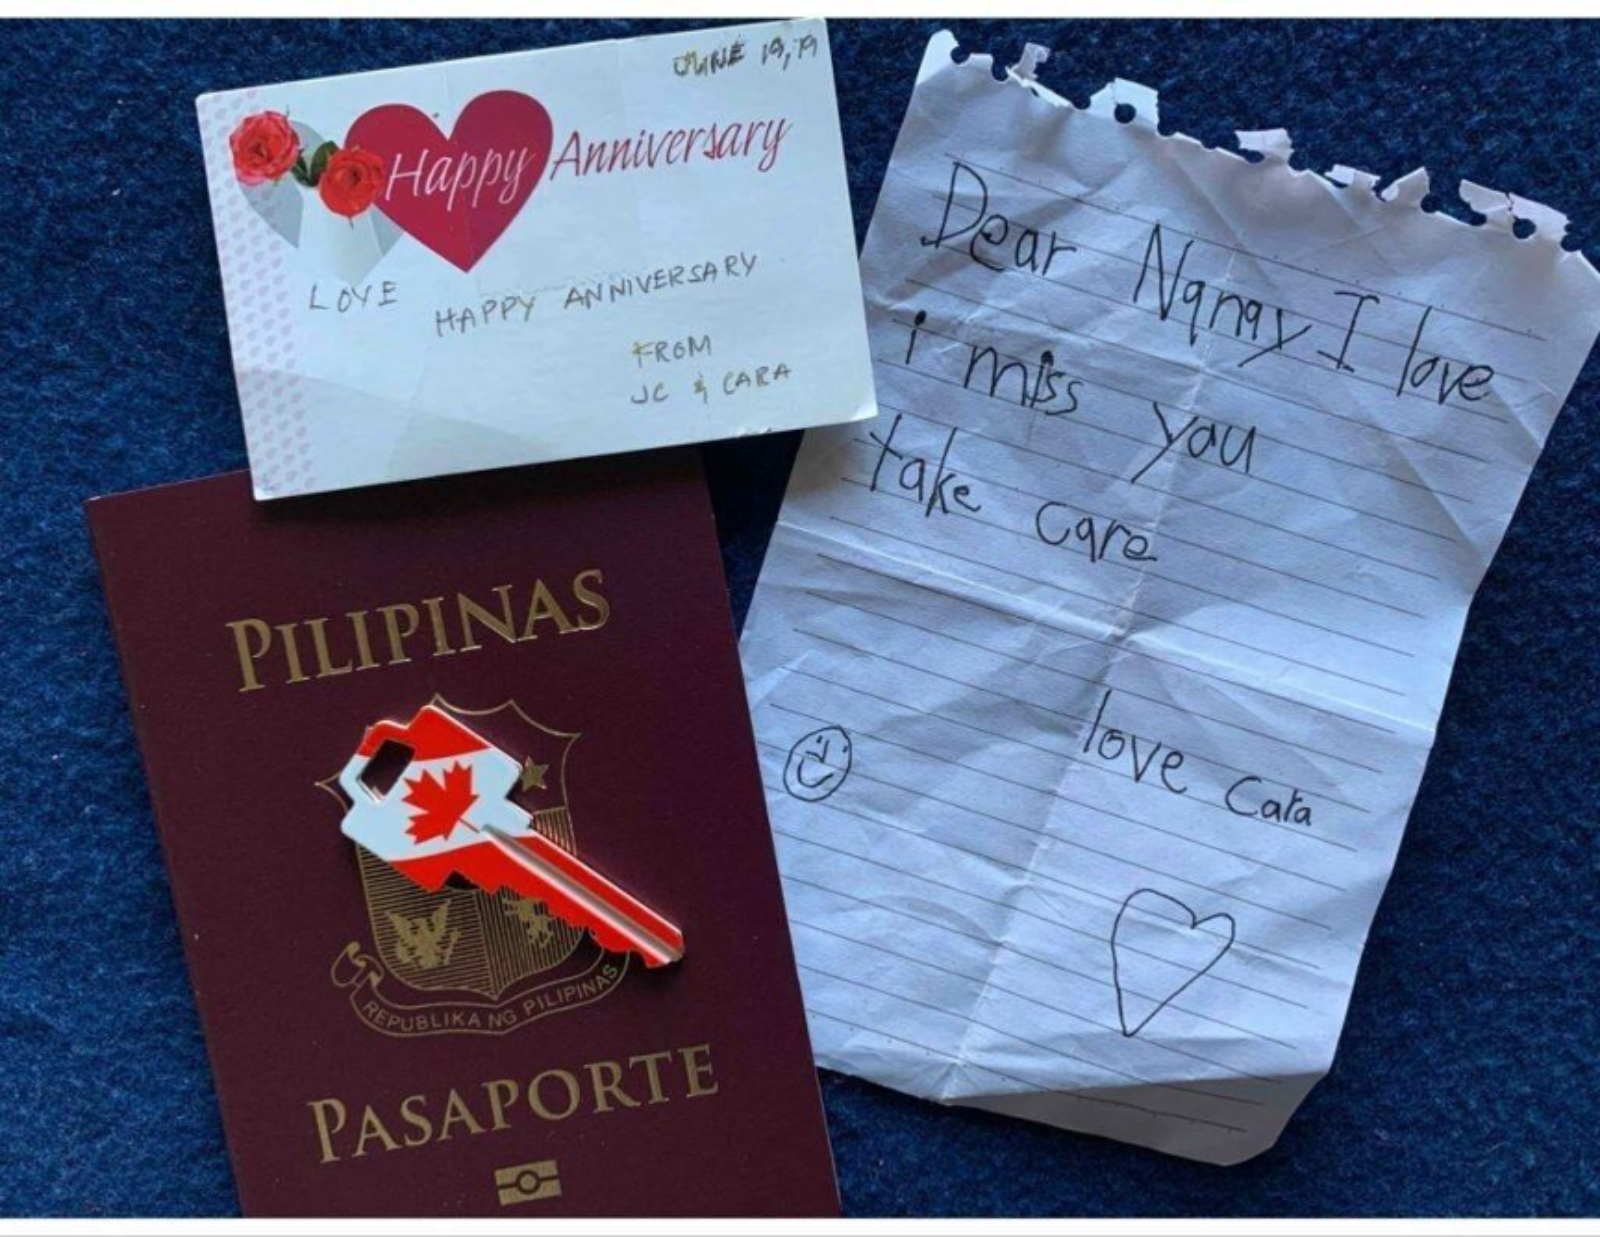 JUNE 19, 79
Happy Anniversary
LOVE
HAPPY ANNIVERSARY
FROM
JC & CARA
Dear Nanay I love
i miss you
take care
love Cara
PILIPINAS
REPUBLIKA NG PILIPINAS
PASAPORTE